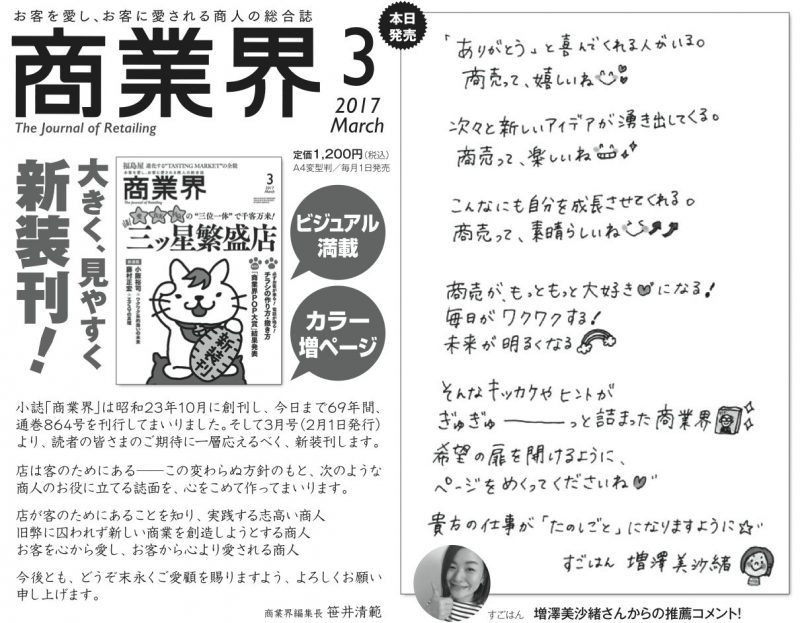 お客を愛し、お客に愛される商人の総合誌
商業界
3
2017
March
The Journal of Retailing
定価1,200円(税込)
A4変型判/毎月1日発売
大きく、見やすく
新装刊!
福島屋 進化する“TASTING MARKET”の全貌
お客を愛し、お客に愛される商人の総合誌
商業界
3
2017
March
の“三位一体”で千客万来!
三ッ星繁盛店
小阪裕司
藤村正宏
チラシの作り方・撒き方
「商業界POP大賞」結果発表
商売繁盛
ビジュアル
満載
カラー
増ページ
小誌「商業界」は昭和23年10月に創刊し、今日まで69年間、
通巻864号を刊行してまいりました。そして3月号(2月1日発行)
より、読者の皆さまのご期待に一層応えるべく、新装刊します。
店は客のためにある──この変わらぬ方針のもと、次のような
商人のお役に立てる誌面を、心をこめて作ってまいります。
店が客のためにあることを知り、実践する志高い商人
旧弊に囚われず新しい商業を創造しようとする商人
お客を心から愛し、お客から心より愛される商人
今後とも、どうぞ末永くご愛顧を賜りますよう、よろしくお願い
申し上げます。
商業界編集長 笹井清範
本日
発売
「ありがとう」と喜んでくれる人がいる。
商売って、嬉しいね
次々と新しいアイデアが湧き出してくる。
商売って、楽しいね
こんなにも自分を成長させてくれる。
商売って、素晴らしいね
商売が、もっともっと大好きになる!
毎日がワクワクする!
未来が明るくなる
そんなキッカケやヒントが
ぎゅぎゅ───っと詰まった商業界
希望の扉を開けるように、
ページをめくってくださいね
貴方の仕事が「たのしごと」になりますように☆
すごはん 増澤美沙緒
すごはん 増澤美沙緒さんからの推薦コメント!